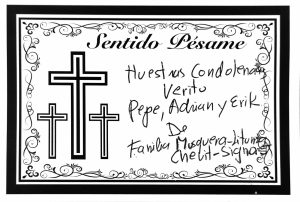 Sentido Pésame
Nuestras Condolencias
Verito
Pepe, Adrian y Erik
De
Familia Mosquera-Lituma
Chelit-Signa